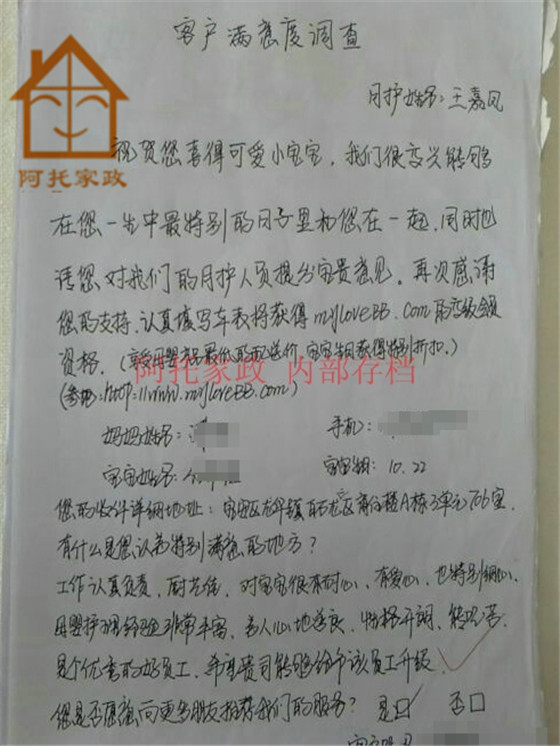 客户满意度调查
月护姓名：王嘉凤
祝贺您喜得可爱小宝宝，我们很高兴能够
阿托家政
在您一生中最特别的日子里和您在一起，同时也
请您对我们的月护人员提出宝贵意见。再次感谢
您的支持，认真填写本表将获得myloveBB.com的高级会员
资格。（享受母婴 最低的配送价，宝宝 获得特别折扣。）
阿托家政 内部存档
（参考：http://www.myloveBB.com）
妈妈姓名： 手机：
宝宝姓名： 宝宝 期：10.22
您的收件详细地址：宝安区龙华镇 龙 区 A栋3单元706室
有什么是您认为特别满意的地方？
工作认真负责，厨艺佳，对宝宝很有耐心，有爱心，也特别细心，
母婴护理经验非常丰富，为人心地善良，性格开朗，能吃苦，
是个优秀的好员工，希望贵司能够给予该员工升级
您是否愿意向更多朋友推荐我们的服务？ 是☑ 否□